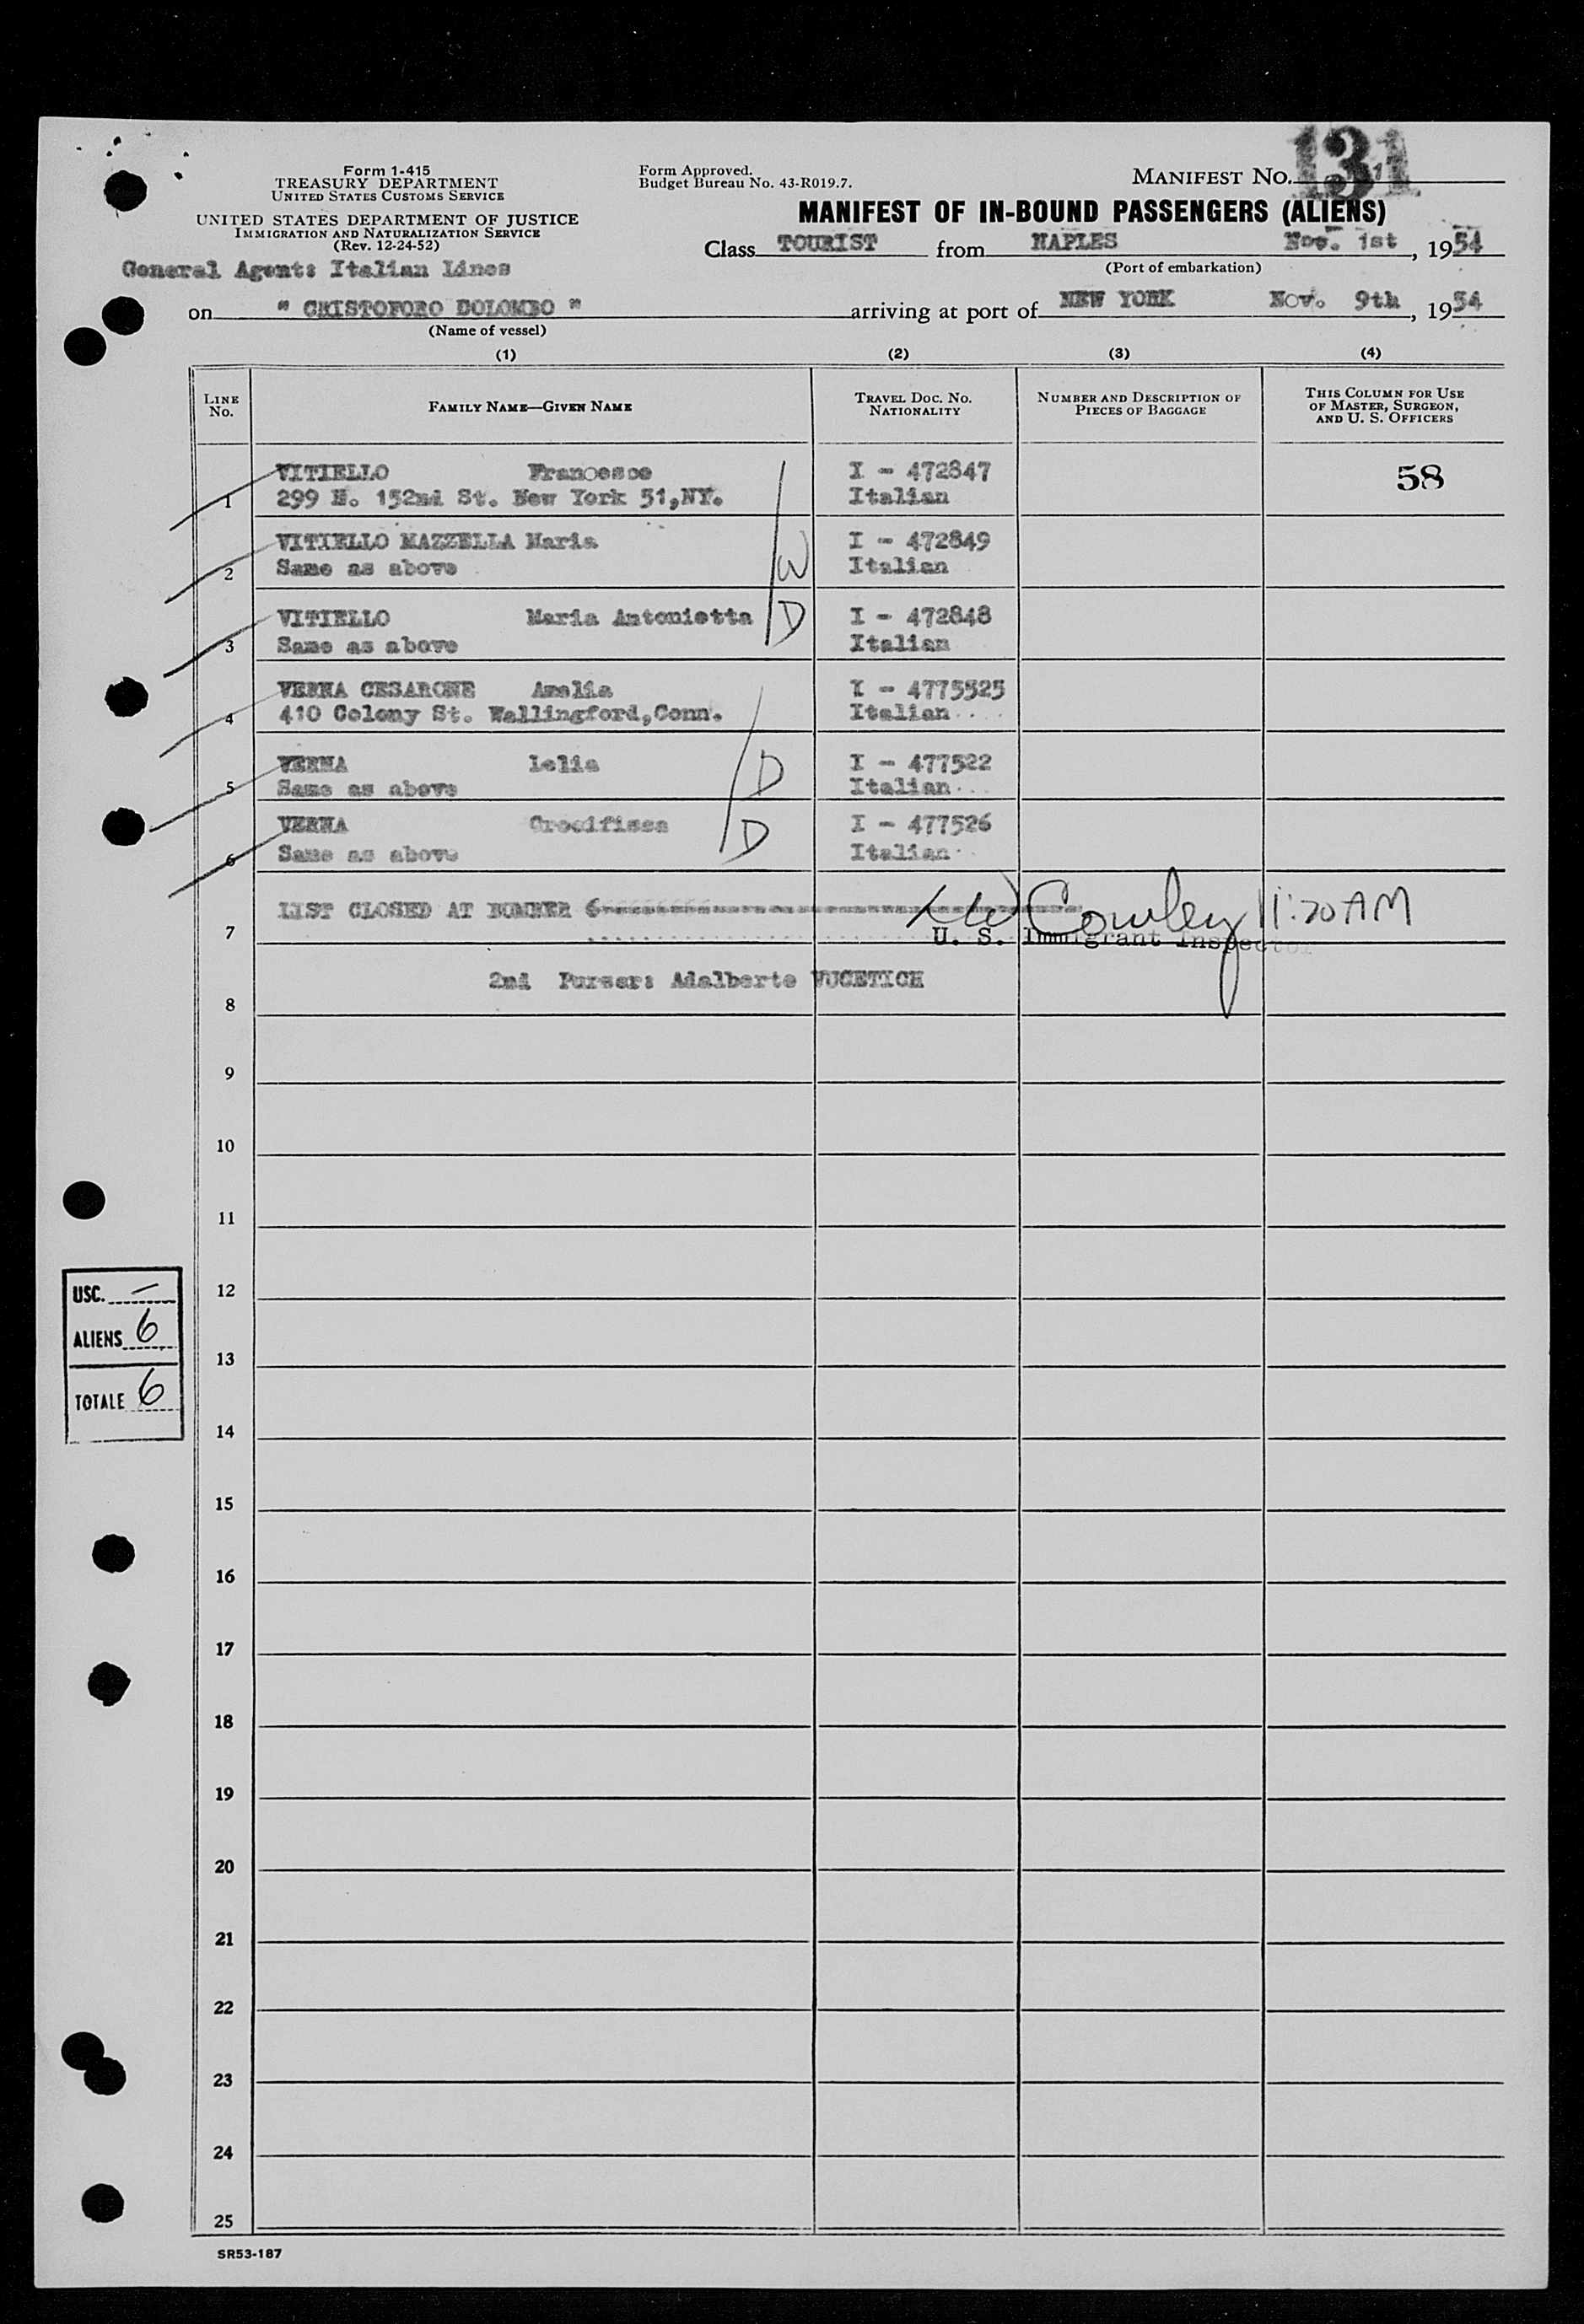 Form 1-415
TREASURY DEPARTMENT
UNITED STATES CUSTOMS SERVICE
UNITED STATES DEPARTMENT OF JUSTICE
IMMIGRATION AND NATURALIZATION SERVICE
(Rev. 12-24-52)
Form Approved.
Budget Bureau No. 43-R019.7.
MANIFEST No. 131
MANIFEST OF IN-BOUND PASSENGERS (ALIENS)
Class TOURIST from NAPLES Nov. 1st, 1954
(Port of embarkation)
General Agent: Italian Lines
on " CRISTOFORO DOLOMBO " arriving at port of NEW YORK Nov. 9th, 1954
(Name of vessel)
(1) (2) (3) (4)
LINE No. FAMILY NAME—GIVEN NAME TRAVEL DOC. NO. NATIONALITY NUMBER AND DESCRIPTION OF PIECES OF BAGGAGE THIS COLUMN FOR USE OF MASTER, SURGEON, AND U. S. OFFICERS
VITIELLO Francesco I - 472847 58
1 299 E. 152nd St. New York 51,NY. Italian
VITIELLO MAZZELLA Maria I - 472849
2 Same as above W Italian
VITIELLO Maria Antonietta D I - 472848
3 Same as above Italian
VERNA CESARONE Amelia I - 4775525
4 410 Colony St. Wallingford,Conn. Italian
VERNA lelia D I - 477522
5 Same as above Italian
VERNA Crocifissa D I - 477526
6 Same as above Italian
LIST CLOSED AT NUMBER 6 Cowley 11:20 AM
7 U. S. Immigrant Inspector
2nd Purser: Adalberto VUCETICH
8
9
10
11
USC. —
12
ALIENS 6
13
TOTALE 6
14
15
16
17
18
19
20
21
22
23
24
25
SR53-187